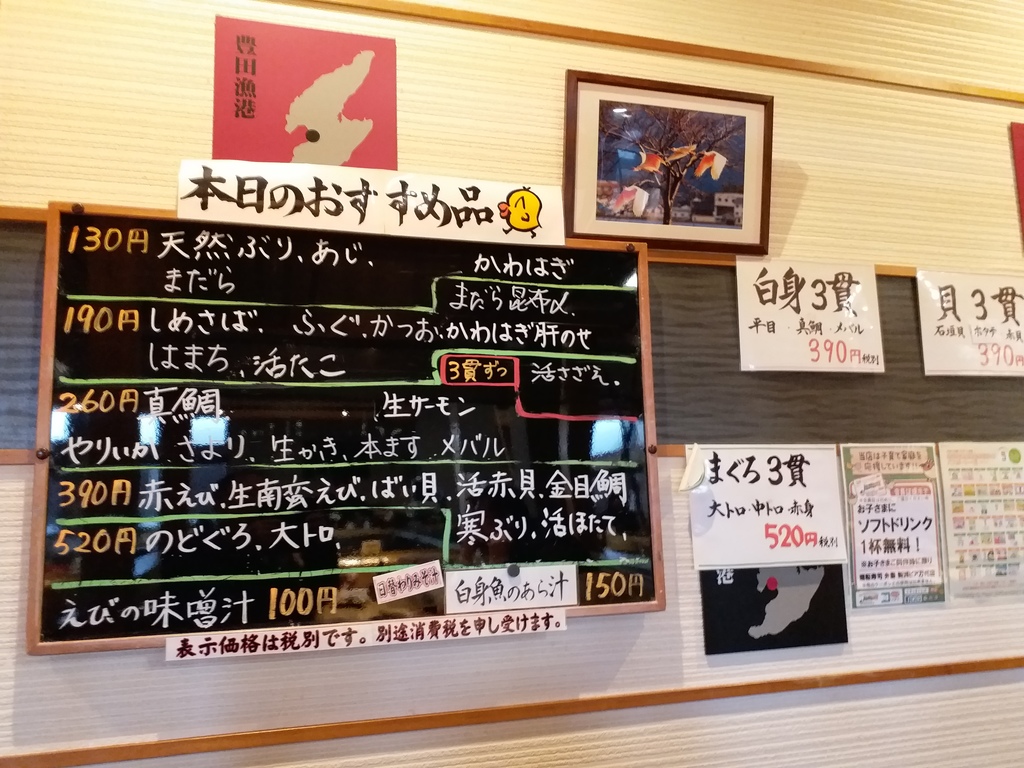 豊田漁港
本日のおすすめ品
130円 天然ぶり、あじ、 かわはぎ
まだら まだら昆布〆
190円 しめさば、ふぐ、かつお、かわはぎ肝のせ
はまち、活たこ
3貫ずつ 活さざえ、
260円 真鯛 生サーモン
やりいか さより、生かき、本ます メバル
390円 赤えび、生南蛮えび、ばい貝、活赤貝、金目鯛
寒ぶり、活ほたて、
520円 のどぐろ、大トロ、
えびの味噌汁 100円
日替わりみそ汁
白身魚のあら汁 150円
表示価格は税別です。別途消費税を申し受けます。
白身3貫
平目・真鯛・メバル
390円税別
貝3貫
石垣貝 ホタテ 赤貝
390円
まぐろ3貫
大トロ・中トロ・赤身
520円税別
港
当店は子育て家庭を
応援しています!!
お子さまに
ソフトドリンク
1杯無料!
※お子さまご同伴時に限り